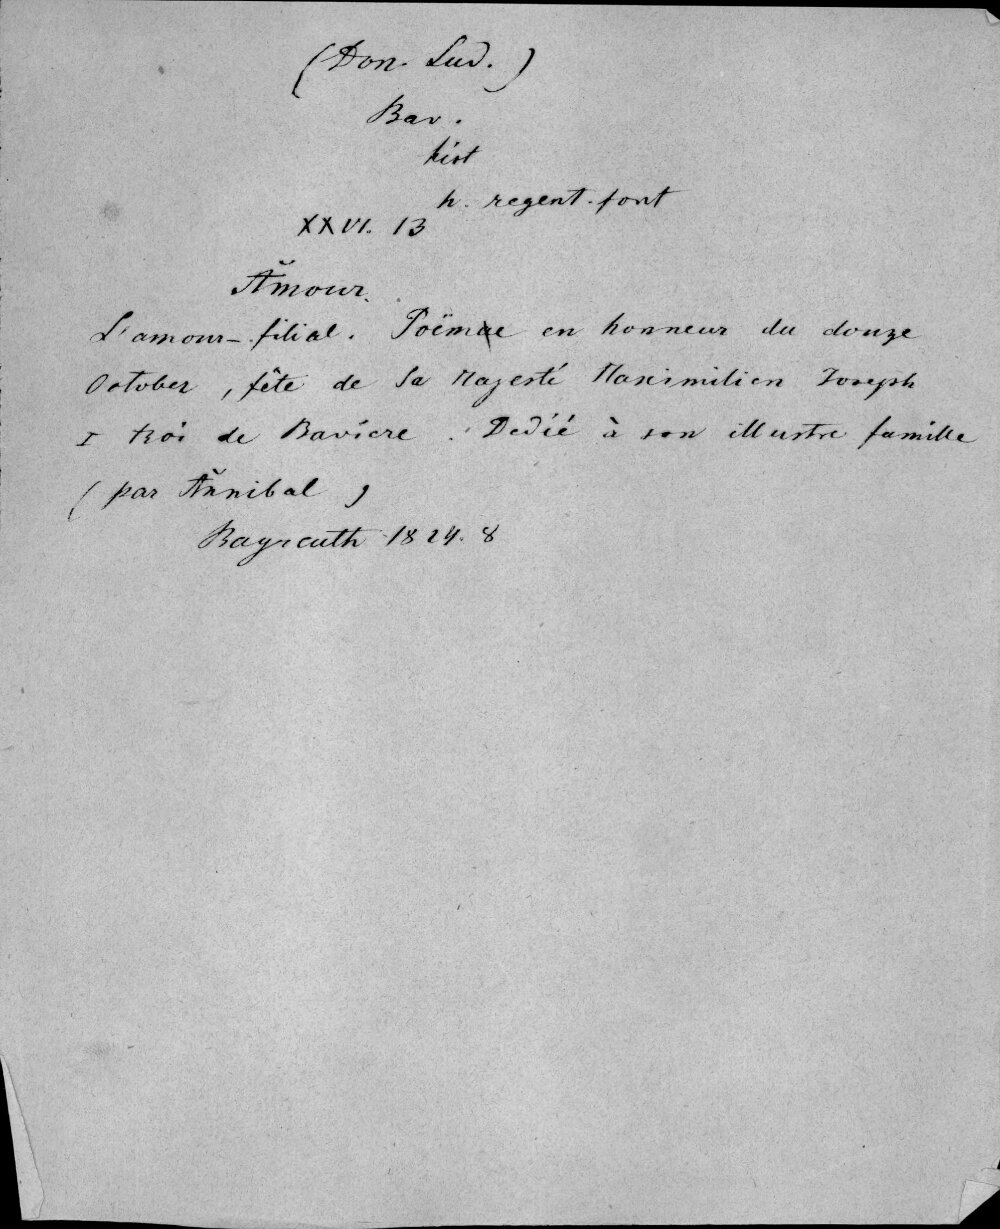 (Don. Lud.)
Bav.
hist
h. regent. font
XXVI. 13
Amour.
L'amour-filial. Poëmae en honneur du douze
October, fête de Sa Majesté Maximilien Joseph
I Roi de Baviere. Dedié à son illustre famille
(par Annibal)
Bayreuth 1824. 8